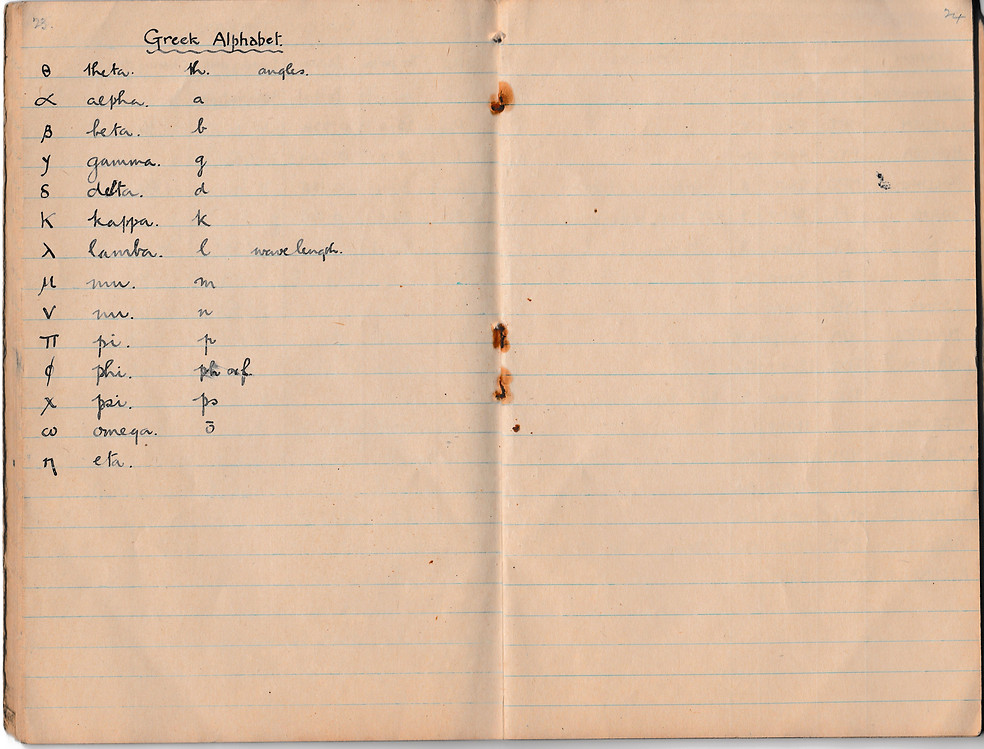 23.
24
Greek Alphabet.
θ theta. th. angles.
α alpha. a
β beta. b
γ gamma. g
δ delta. d
K kappa. k
λ lamba. l wave length.
μ mu. m
ν nu. n
π pi. p
ϕ phi. ph or f
χ psi. ps
ω omega. ō
η eta.